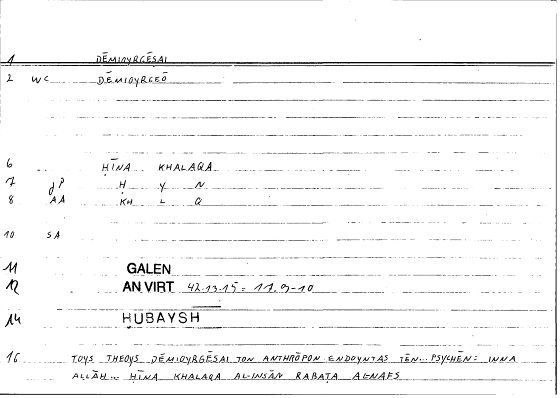 1 DĒMIOYRGĒSAI
2 WC DĒMIOYRGEŌ
6 ḤĪNA KHALAQA
7 dP Ḥ Y N
8 AA KH L Q
10 SA
11 GALEN
12 AN VIRT 42.13.15 = 11.9-10
14 ḤUBAYSH
16 TOYS THEOYS DĒMIOYRGĒSAI TON ANTHRŌPON ENDOYNTAS TĒN... PSYCHĒN: INNA
ALLĀH... ḤĪNA KHALAQA AL-INSĀN RABAṬA ALNAFS